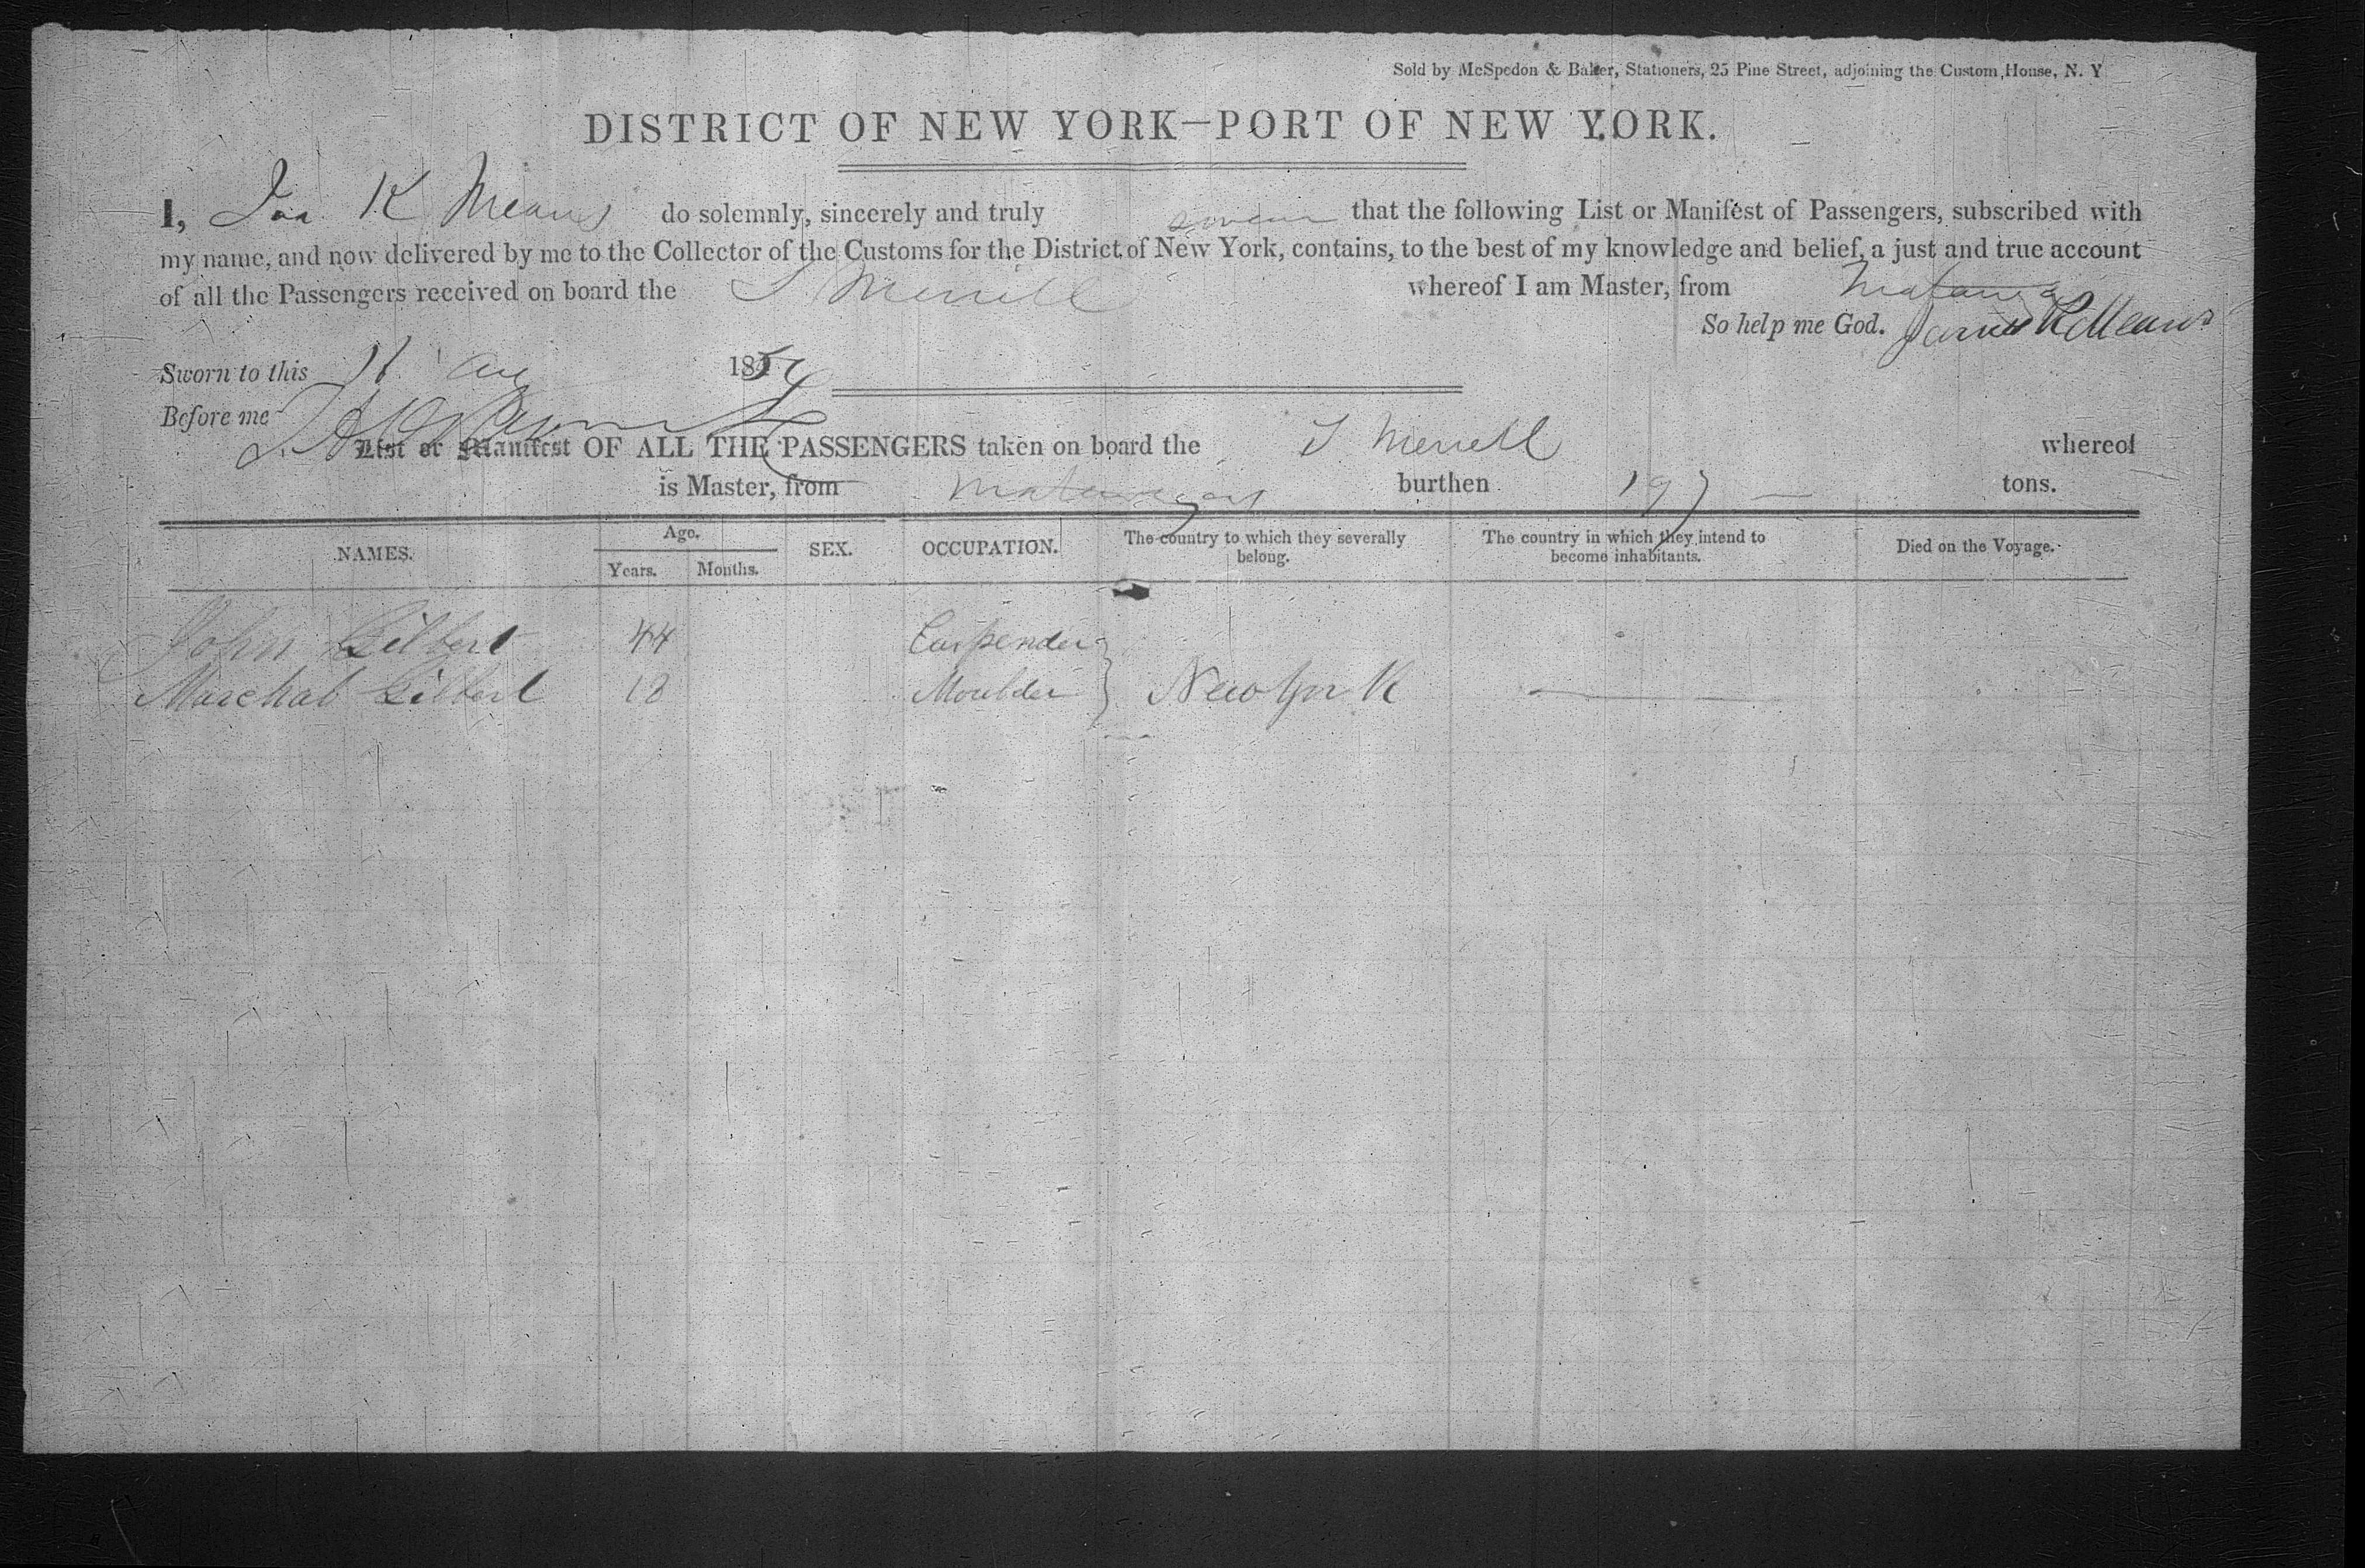 Sold by McSpedon & Baker, Stationers, 25 Pine Street, adjoining the Custom House, N. Y
DISTRICT OF NEW YORK—PORT OF NEW YORK.
I, Jas K Means do solemnly, sincerely and truly swear that the following List or Manifest of Passengers, subscribed with
my name, and now delivered by me to the Collector of the Customs for the District of New York, contains, to the best of my knowledge and belief, a just and true account
of all the Passengers received on board the S Merrill whereof I am Master, from Matanzas
So help me God. James K Means
Sworn to this 11 Aug 185
Before me
List or Manifest OF ALL THE PASSENGERS taken on board the S Merrill whereof
is Master, from Matanzas burthen 197 tons.
NAMES. Age. Years. Months. SEX. OCCUPATION. The country to which they severally belong. The country in which they intend to become inhabitants. Died on the Voyage.
John Gilbert 44 Carpender
Marchal Gilbert 18 Moulder } New York —